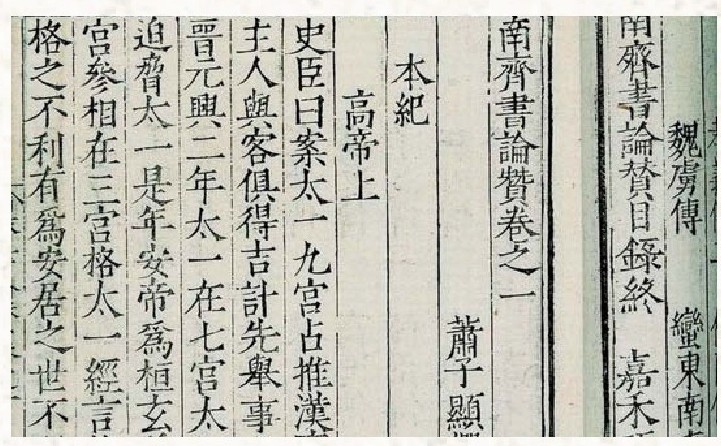 魏虜傳　蠻東南
南齊書論贊目錄終　嘉禾
南齊書論贊卷之一
蕭子顯
本紀
高帝上
史臣曰案太一九宮占推漢
主人與客俱得吉計先舉事
晉元興二年太一在七宮太
迫脅太一是年安帝爲桓玄
宮參相在三宮格太一經言
格之不利有爲安居之世不